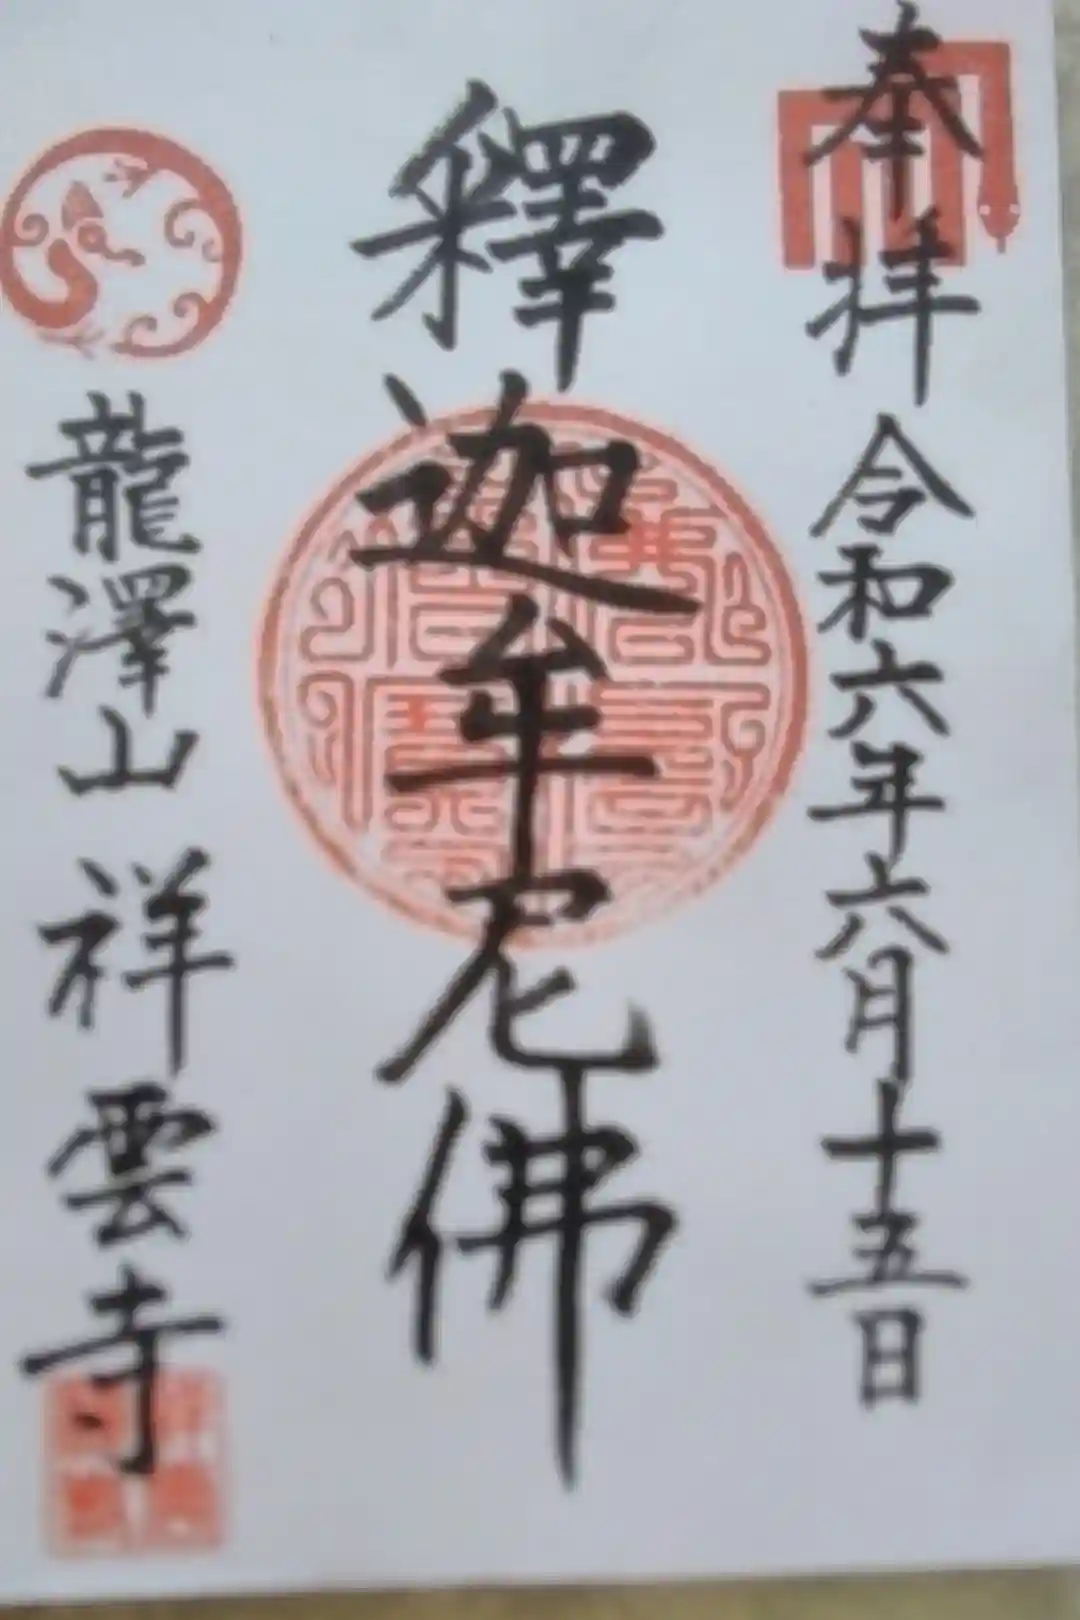 奉拝 令和六年六月十五日
釋迦牟尼佛
龍澤山 祥雲寺